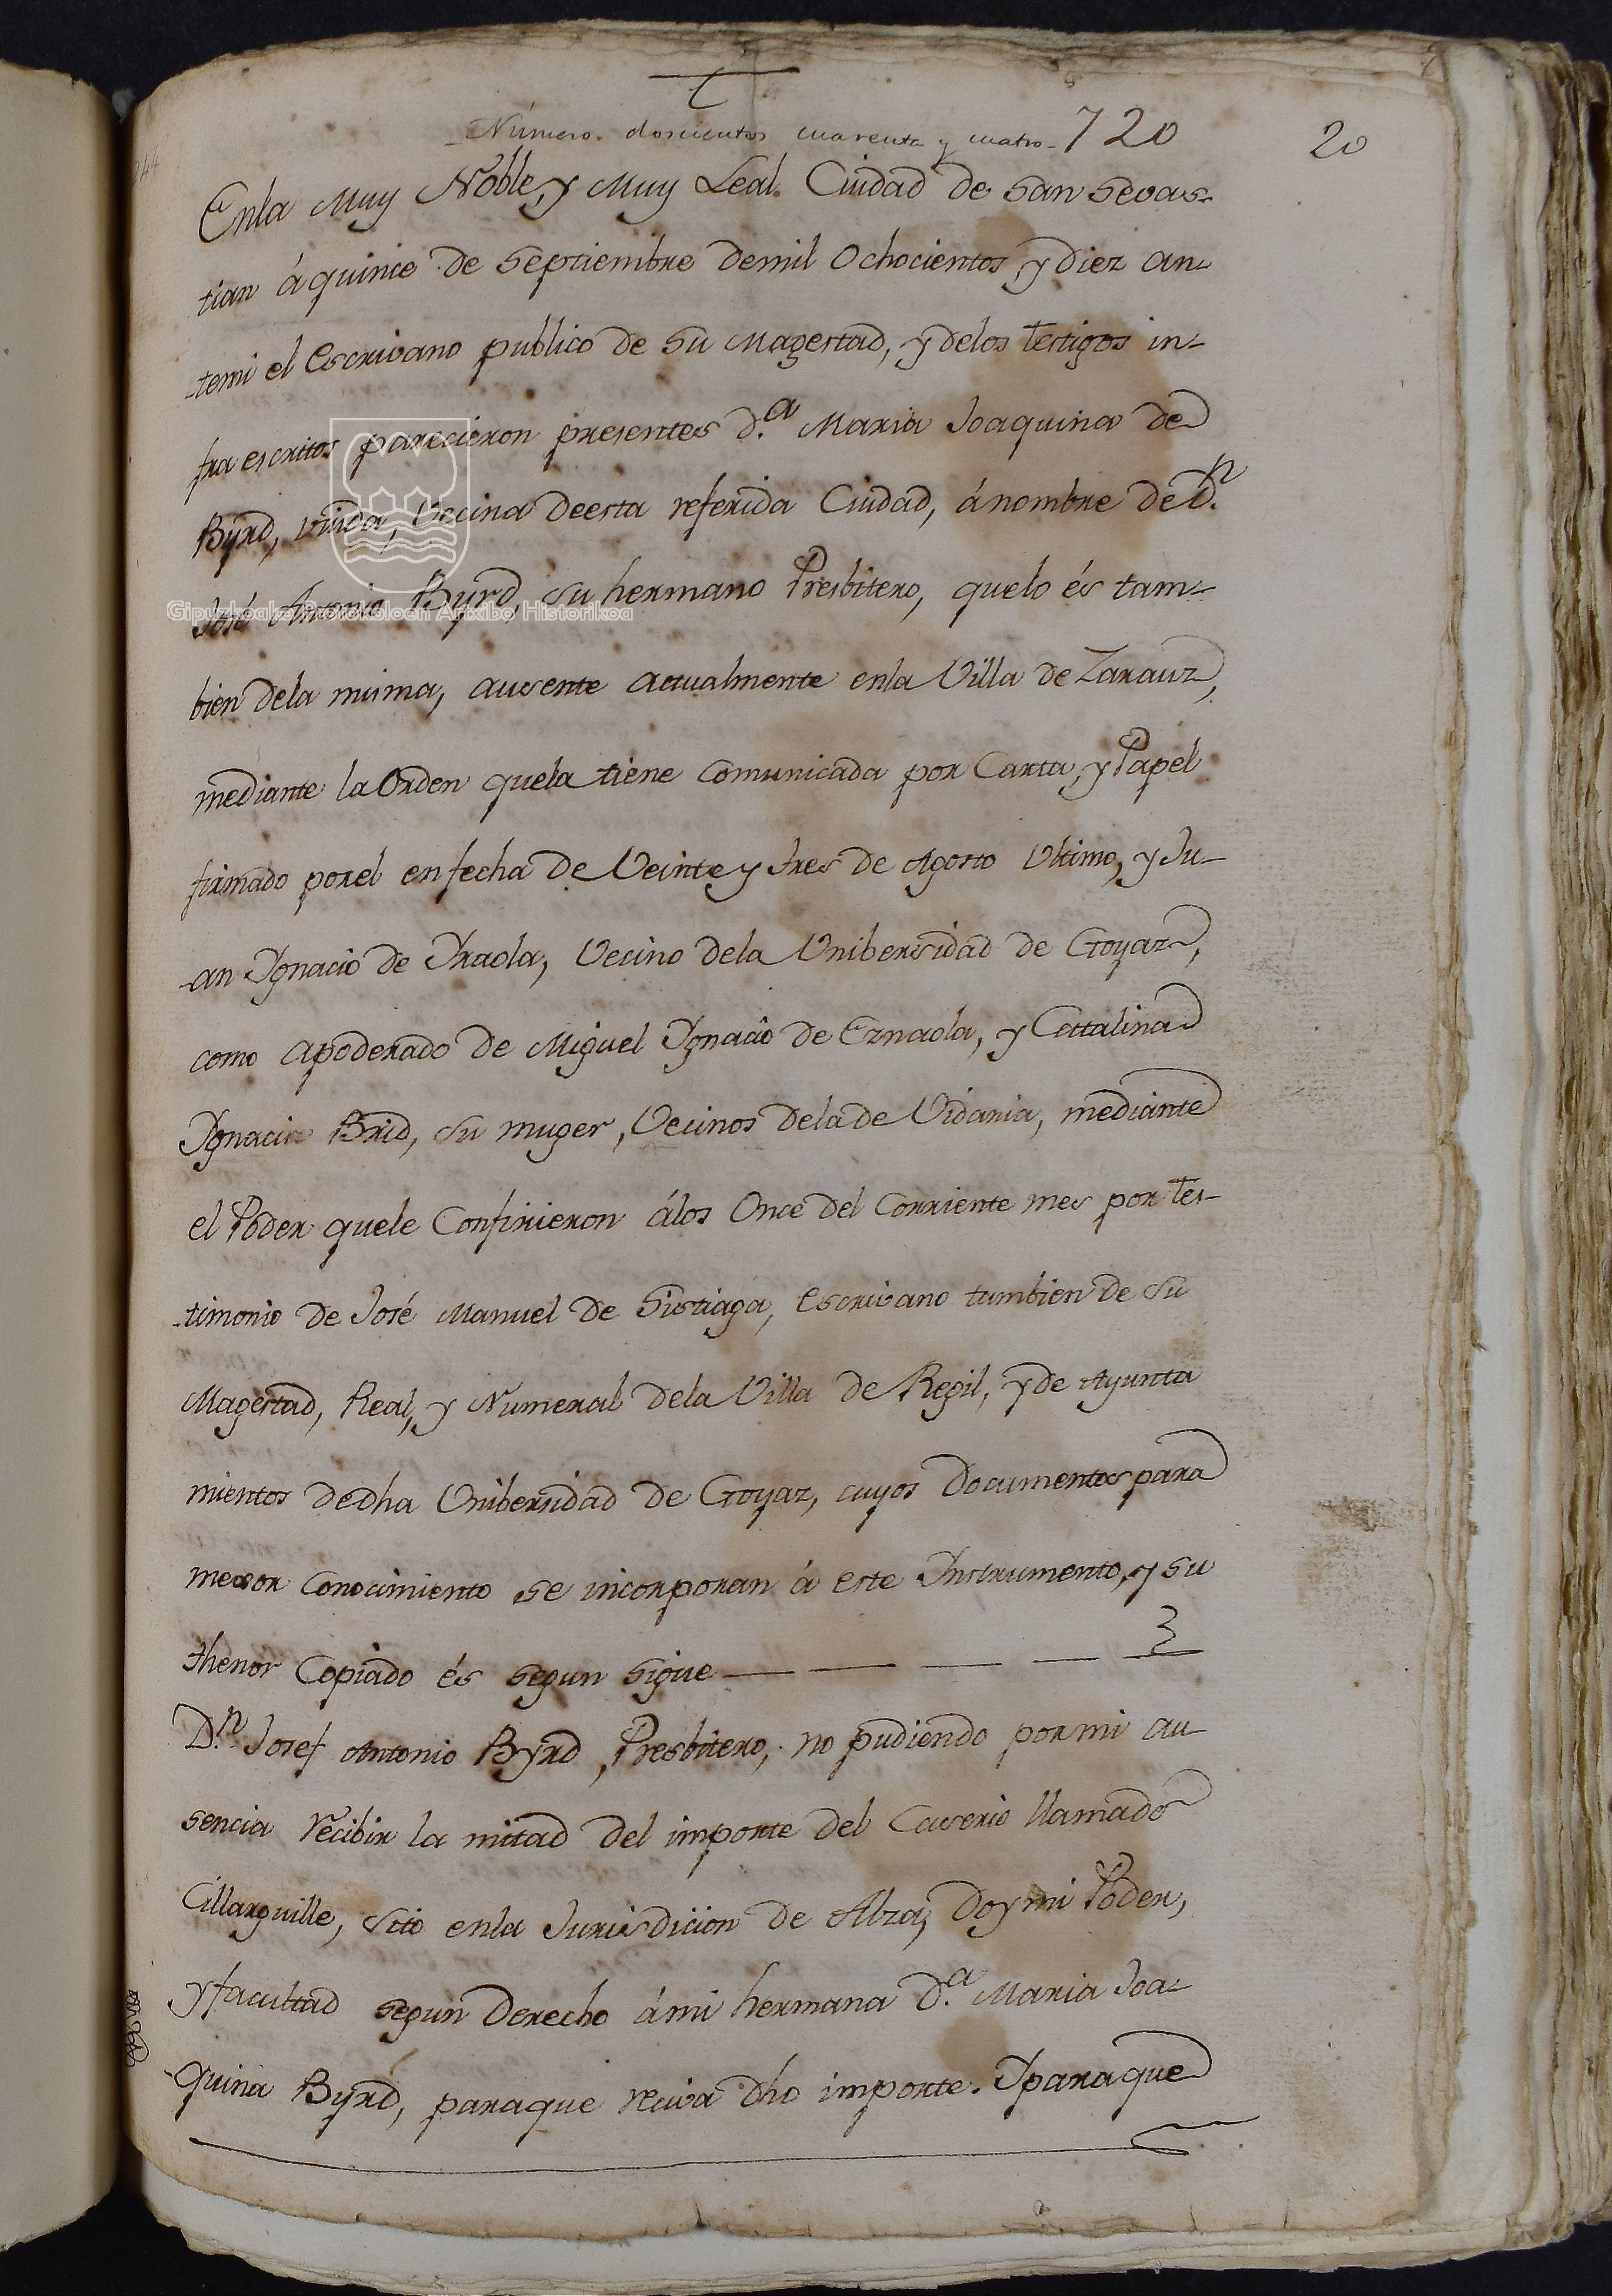 Número doscientos cuarenta y cuatro- 720 20
244
Enla Muy Noble, y Muy Leal Ciudad de San Sevas-
tian á quince de Septiembre demil Ochocientos y diez an-
-temi el Escrivano publico de Su Magestad, y delos testigos in-
fraescritos parecieron presentes d.ª Maria Joaquina de
Byrd, viuda, Vecina deesta referida Ciudad, ánombre de D.n
José Antonio Byrd, su hermano Presbitero, quelo és tam-
bien dela misma, ausente actualmente enla Villa de Zarauz,
mediante la Orden quela tiene comunicada por Carta, y Papel
firmado porel en fecha de Veinte y tres de Agosto Ultimo, y Ju-
-an Ygnacio de Yraola, Vecino dela Unibersidad de Goyaz,
como apoderado de Miguel Ygnacio de Eznaola, y Cattalina
Ygnacia Brid, su muger, Vecinos delade Vidania, mediante
el Poder quele Confirieron álos Once del Corriente mes por tes-
-timonio de José Manuel de Sistiaga, Escrivano tambien de Su
Magestad, Real, y Numeral dela Villa de Regil, y de Ayunta
mientos dedha Unibersidad de Goyaz, cuyos Documentos para
mexor Conocimiento se incorporan á este Instrumento, y su
thenor Copiado és segun sigue
D.n Josef Antonio Byrd, Presbitero, no pudiendo pormi au-
sencia recibir la mitad del importe del Caserio llamado
Cillarguille, sito enla Jurisdicion de Alza, Doy mi Poder,
y facultad segun Derecho ámi hermana D.ª Maria Joa-
-quina Byrd, paraque reciva dho importe. Yparaque
Gipuzkoako Protokoloen Artxibo Historikoa